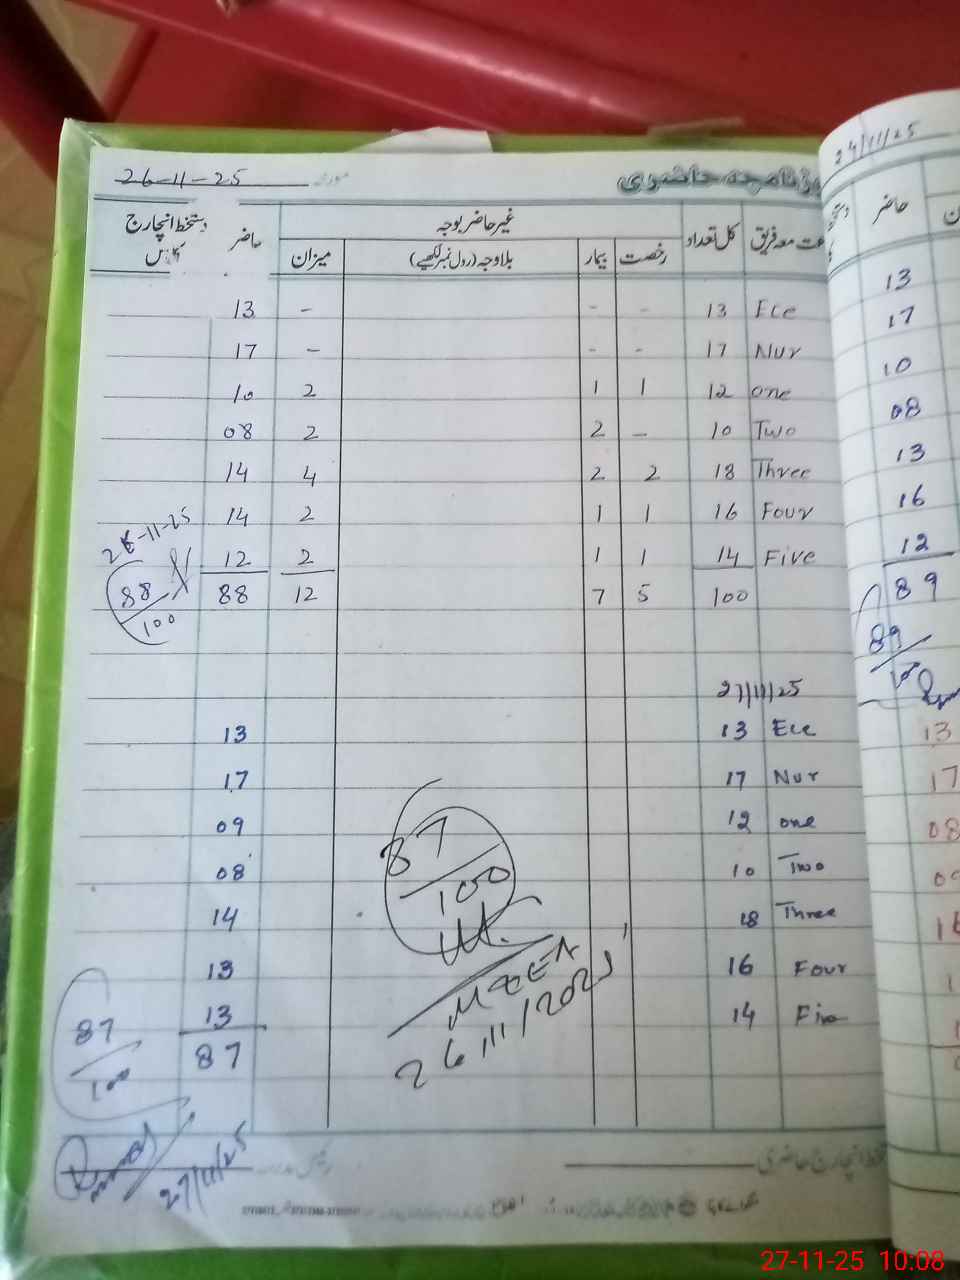 روزنامچہ حاضری
مورخہ 26-11-25
جماعت معہ فریق کل تعداد غیر حاضر بوجہ حاضر دستخط انچارج کلاس
رخصت بیمار بلاوجہ (رول نمبر لکھیے) میزان
Ece 13 - - - 13
Nur 17 - - - 17
one 12 1 1 2 10
Two 10 - 2 2 08
Three 18 2 2 4 14
Four 16 1 1 2 14
Five 14 1 1 2 12
100 5 7 12 88
26-11-25
88/100
27/11/25
Ece 13 13
Nur 17 17
one 12 09
Two 10 08
Three 18 14
Four 16 13
Five 14 13
87
87/100
87/100
MEEA
26/11/2025
27/11/25
دستخط انچارج حاضری
رئیس مدرسہ
24/11/25
حاضر
13
17
10
08
13
16
12
89
89
13
17
08
09
16
27-11-25 10:08